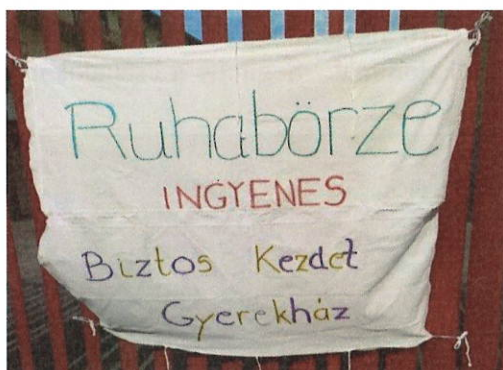 Ruhabörze
INGYENES
Biztos Kezdet
Gyerekház